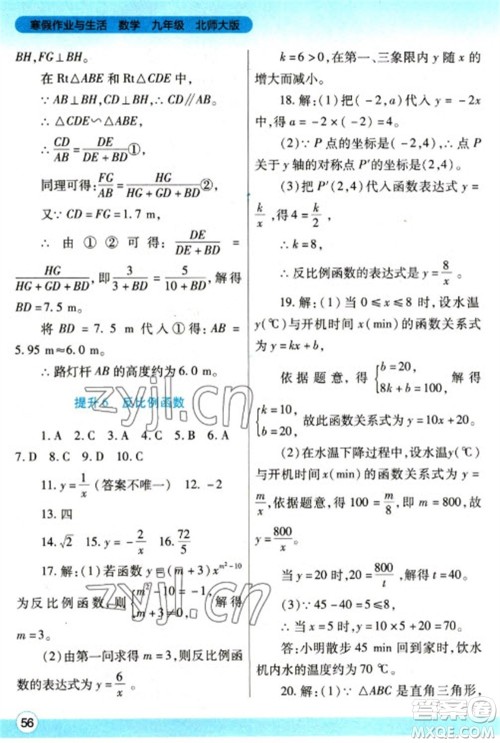 寒假作业与生活 数学 九年级 北师大版
BH,FG⊥BH.
在 Rt△ABE 和 Rt△CDE 中
∵ AB⊥BH,CD⊥BH,CD∥AB.
∴ △CDE∽△ABE.
∴ CD/AB = DE/(DE+BD)①
同理可得:FG/AB = HG/(HG+GD+BD)②
又∵ CD=FG=1.7 m,
∴ 由 ① ② 可得: DE/(DE+BD) =
HG/(HG+GD+BD),即 3/(3+BD) = 5/(10+BD),解得
BD=7.5 m.
将 BD=7.5 m 代入①得:AB=
5.95 m≈6.0 m.
∴ 路灯杆 AB 的高度约为 6.0 m.
提升 6 反比例函数
1. A 2. C 3. B 4. D 5. C 6. B
7. D 8. D 9. C 10. A
11. y=1/x(答案不唯一) 12. -2
13. 四
14. √2 15. y=-2/x 16. 72/5
17. 解:(1)若函数 y=(m+3)x^(m²-10)
为反比例函数,则{m²-10=-1, m+3≠0, 解得
m=3.
(2)由第一问求得 m=3,反比例函
数的表达式为 y=6/x.
k=6>0,在第一、三象限内 y 随 x 的
增大而减小.
18. 解:(1)把(-2,a)代入 y=-2x
中,得 a=-2×(-2)=4.
(2)∵ P 点的坐标是(-2,4),∴ 点
P 关于 y 轴的对称点 P′的坐标是(2,4).
(3)把 P′(2,4)代入函数表达式 y=
k/x,得 4=k/2,
∴ k=8,
∴ 反比例函数的表达式是 y=8/x.
19. 解:(1)当 0≤x≤8 时,设水温
y(℃)与开机时间 x(min)的函数关系式
为 y=kx+b.
依据题意,得{b=20, 8k+b=100, 解得
{k=10, b=20, 故此函数关系式为 y=10x+20.
(2)在水温下降过程中,设水温 y(℃)
与开机时间 x(min)的函数关系式为 y=
m/x,依据题意,得 100=m/8,即 m=800,故
y=800/x.
当 y=20 时,20=800/t,解得 t=40.
(3)∵ 45-40=5≤8,
∴ 当 x=5 时,y=10×5+20=70.
答:小明散步 45 min 回到家时,饮
机内水的温度约为 70 ℃.
20. 解:(1)∵ △ABC 是直角三角形,
56
zyjl.cn
zyjl.cn
答案圈
MXQE.COM